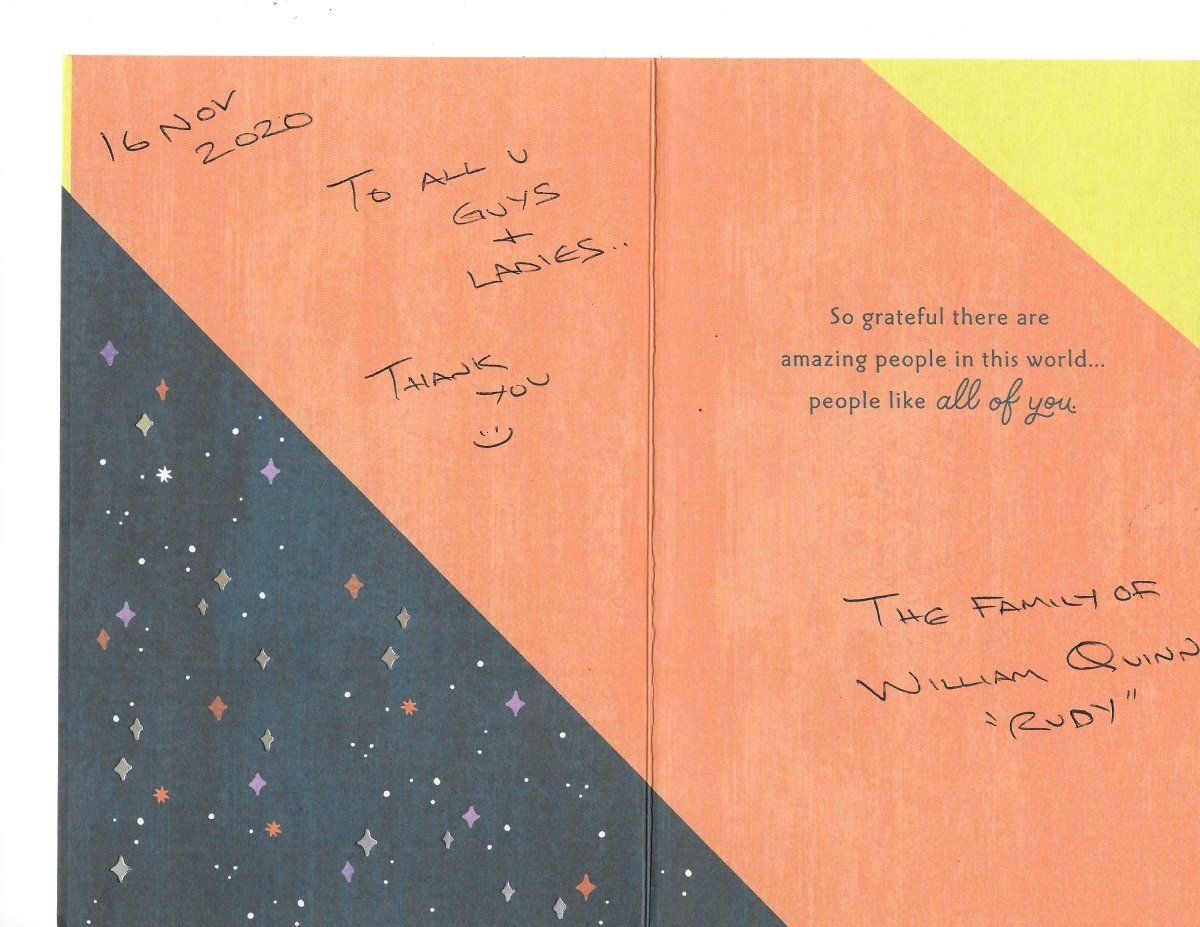 16 NOV
2020
TO ALL U
GUYS
+
LADIES..
THANK
YOU
So grateful there are
amazing people in this world...
people like all of you.
THE FAMILY OF
WILLIAM QUINN
"RUDY"